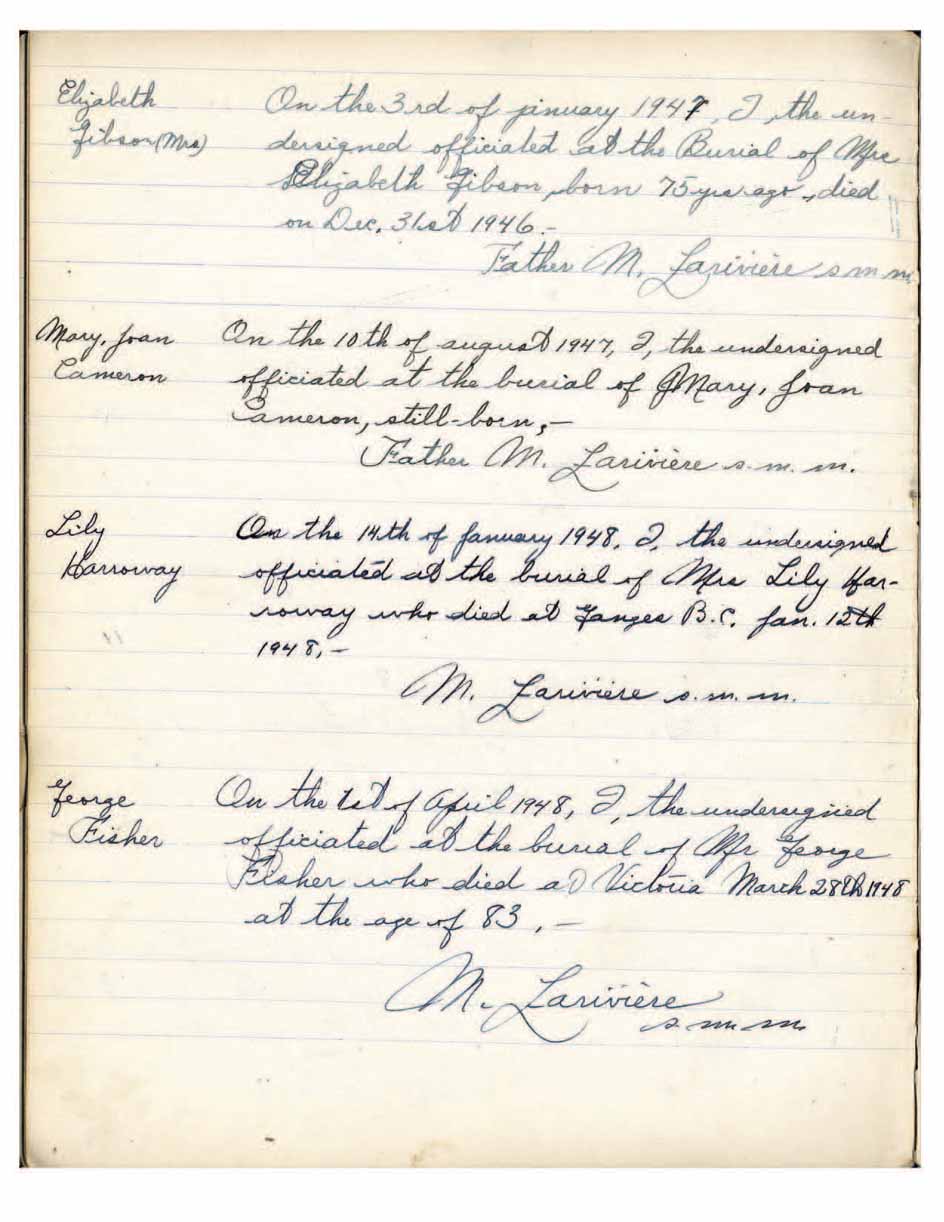 Elizabeth
Gibson (Mrs)
On the 3rd of january 1947, I, the un-
dersigned officiated at the Burial of Mrs
Elizabeth Gibson, born 75 yrs ago, died
on Dec. 31st 1946.-
Father M. Larivière s.m.m.
Mary, Joan
Cameron
On the 10th of august 1947, I, the undersigned
officiated at the burial of Mary, Joan
Cameron, still-born,-
Father M. Larivière s.m.m.
Lily
Harroway
On the 14th of January 1948, I, the undersigned
officiated at the burial of Mrs Lily Har-
roway who died at Ganges B.C. Jan. 12th
1948,-
M. Larivière s.m.m.
George
Fisher
On the 1st of April 1948, I, the undersigned
officiated at the burial of Mr George
Fisher who died at Victoria March 28th 1948
at the age of 83,-
M. Larivière
s.m.m.